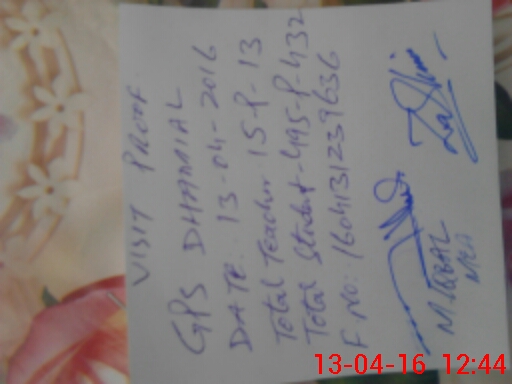 VISIT PROOF
GPS DHAMIAL
DATE: 13-04-2016
Total Teacher 15-P-13
Total Student-495-P-432
F.No: 1604131239636
M. IQBAL
MEA
13-04-16 12:44